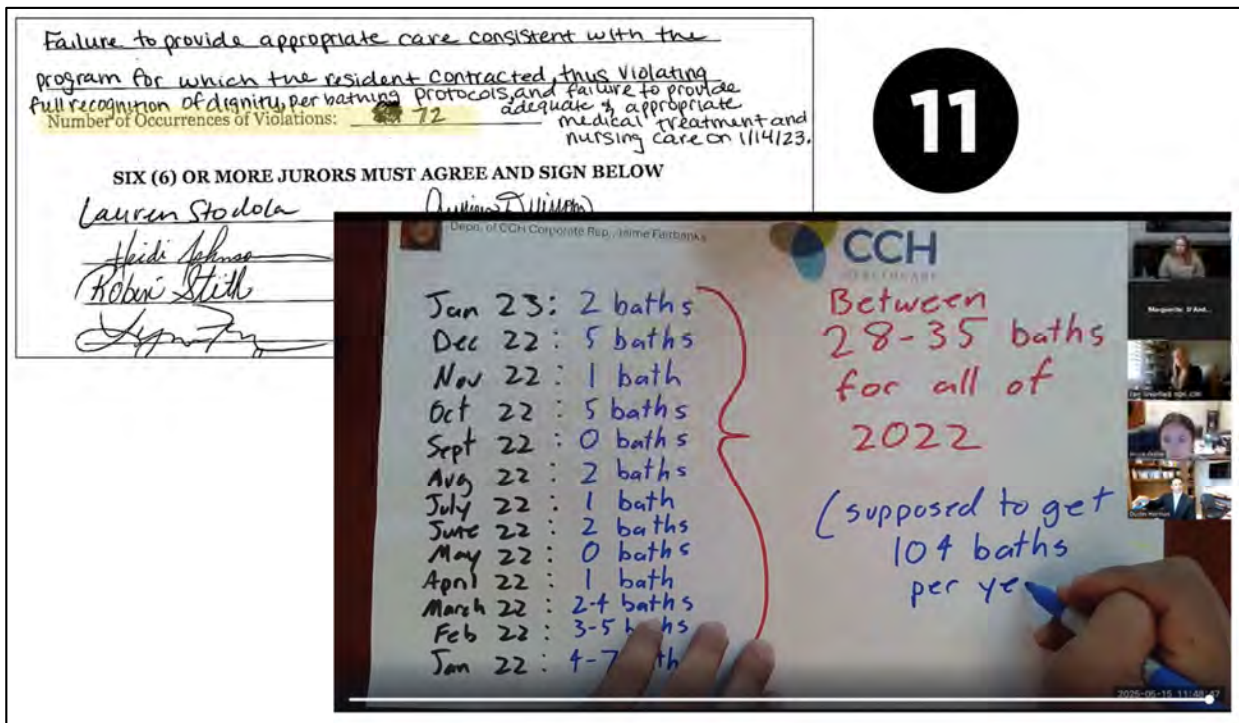 Failure to provide appropriate care consistent with the
program for which the resident contracted, thus violating
full recognition of dignity, per bathing protocols, and failure to provide
adequate & appropriate
medical treatment and
nursing care on 1/14/23.
Number of Occurrences of Violations: 72
SIX (6) OR MORE JURORS MUST AGREE AND SIGN BELOW
Lauren Stodola
Heidi Johnson
Robin Stith
11
Depo. of CCH Corporate Rep., Jaime Fairbanks
CCH
HEALTHCARE
Jan 23: 2 baths
Dec 22: 5 baths
Nov 22: 1 bath
Oct 22: 5 baths
Sept 22: 0 baths
Aug 22: 2 baths
July 22: 1 bath
June 22: 2 baths
May 22: 0 baths
April 22: 1 bath
March 22: 2-4 baths
Feb 22: 3-5 baths
Jan 22: 4-7
Between
28-35 baths
for all of
2022
(supposed to get
104 baths
per ye
2025-05-15 11:48:47